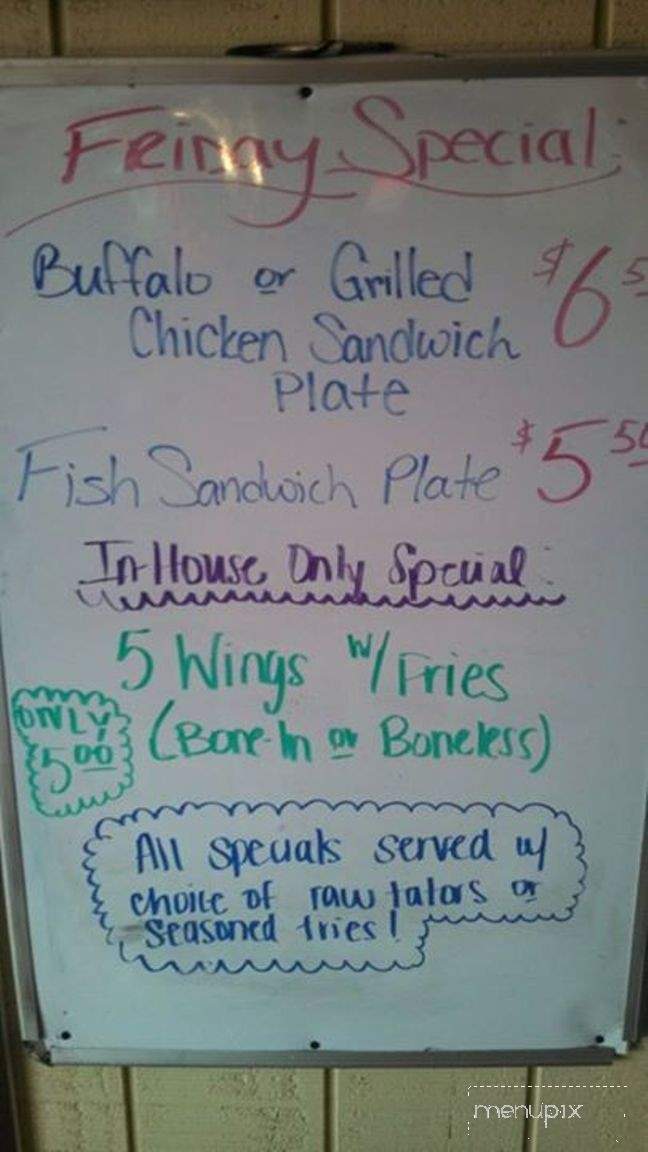 Friday Special:
Buffalo or Grilled $6 5
Chicken Sandwich
Plate
Fish Sandwich Plate $5 50
In-House Only Special:
5 Wings w/ Fries
(Bone-In or Boneless)
ONLY
5.00
All specials served w/
choice of raw taters or
seasoned fries!
menupix